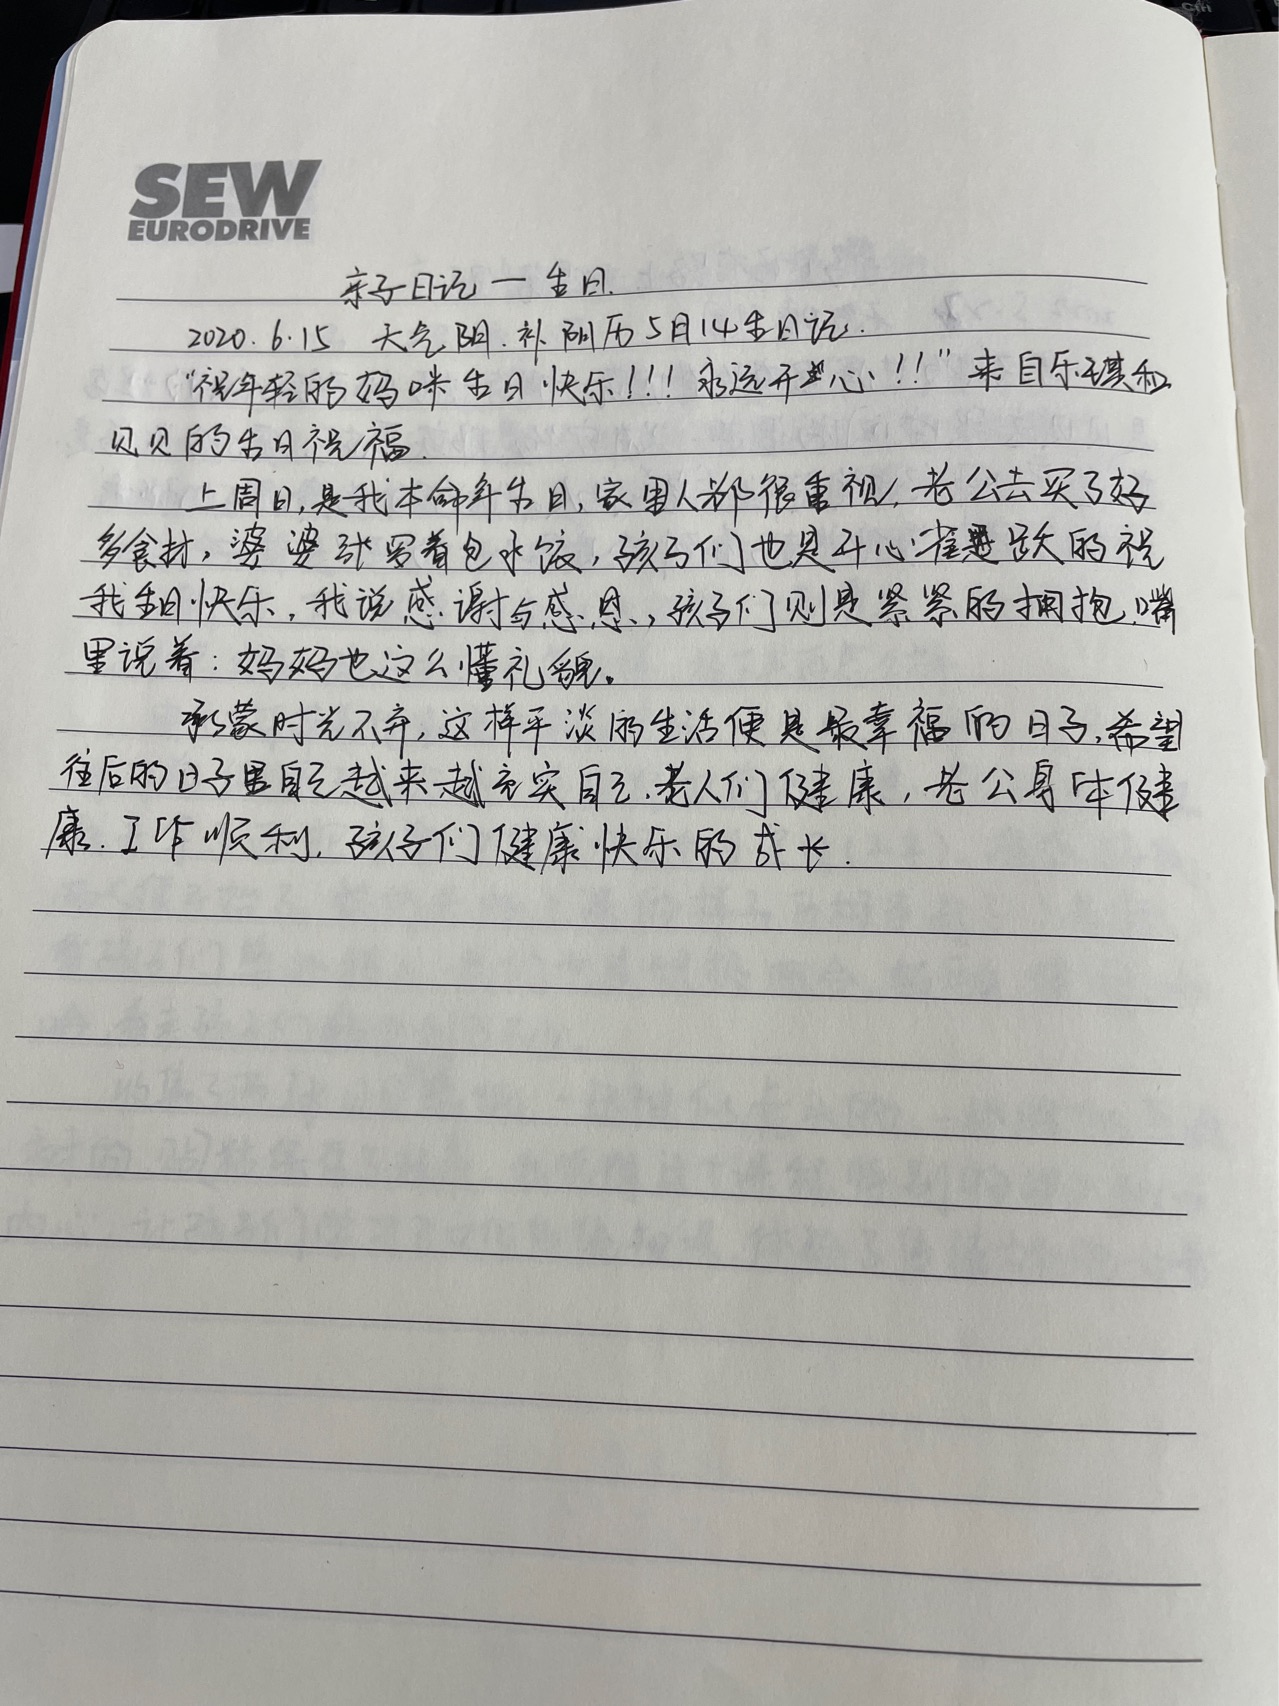 SEW
EURODRIVE
亲子日记一生日.
2020.6.15 天气阴.补阴历5月14生日记.
“祝年轻的妈咪生日快乐!!!永远开心!!”来自乐琪和
贝贝的生日祝福.
上周日,是我本命年生日,家里人都很重视,老公去买了好
多食材,婆婆张罗着包水饺,孩子们也是开心雀跃的祝
我生日快乐,我说感谢与感恩,孩子们则是紧紧的拥抱,嘴
里说着:妈妈也这么懂礼貌。
承蒙时光不弃,这样平淡的生活便是最幸福的日子,希望
往后的日子里自己越来越充实自己,老人们健康,老公身体健
康.工作顺利,孩子们健康快乐的成长.